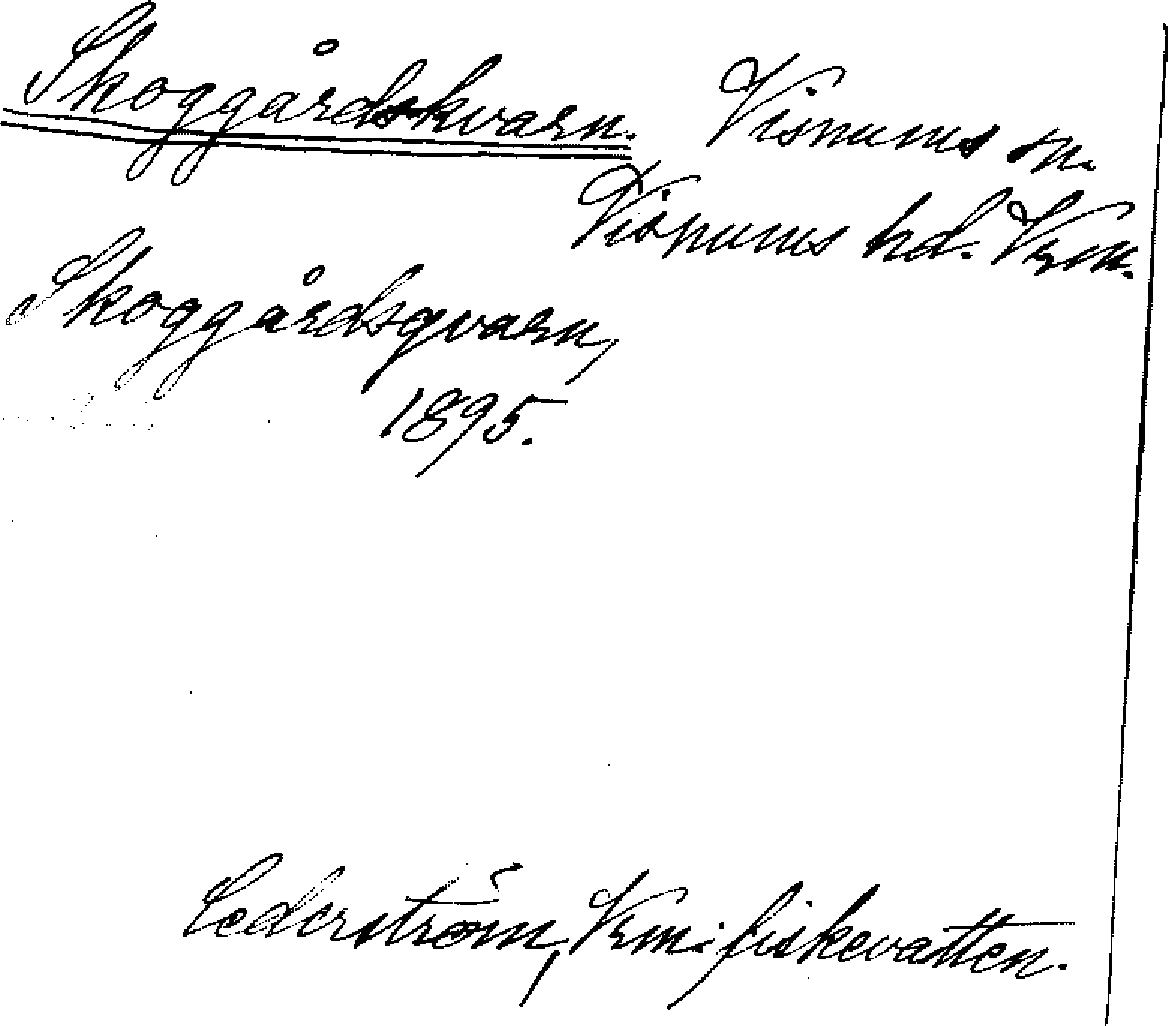 Skoggårdskvarn. Visnums sn.
Visnums hd. Vrm.
Skoggårdsqvarn,
1895.
Cederström, Vrm:s fiskevatten.